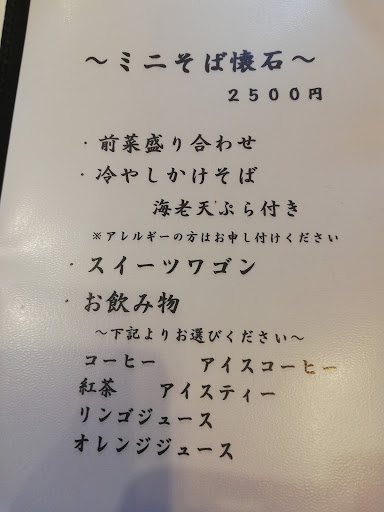 ～ミニそば懐石～
２５００円
・前菜盛り合わせ
・冷やしかけそば
海老天ぷら付き
※アレルギーの方はお申し付けください
・スイーツワゴン
・お飲み物
～下記よりお選びください～
コーヒー　アイスコーヒー
紅茶　アイスティー
リンゴジュース
オレンジジュース